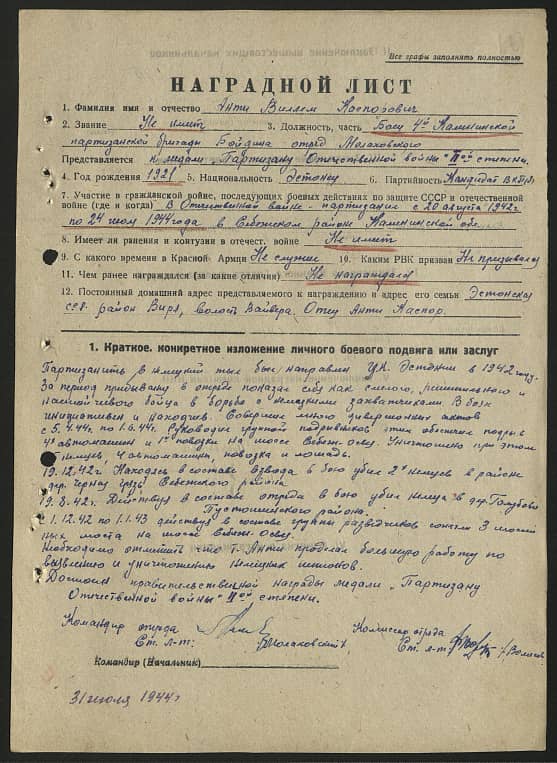 Все графы заполнять полностью
НАГРАДНОЙ ЛИСТ
1. Фамилия имя и отчество Анти Виллем Каспорович
2. Звание Не имеет 3. Должность, часть Боец 4й Калининской
партизанской бригады Бойдина отряд Молаховского
Представляется к медали "Партизану Отечественной войны" IIой степени.
4. Год рождения 1921 5. Национальность Эстонец 6. Партийность Кандидат ВКП(б)
7. Участие в гражданской войне, последующих боевых действиях по защите СССР и отечественной
войне (где и когда) В Отечественной войне - партизании с 20 августа 1942г
по 24 июл 1944 года в Себежском районе Калининской
8. Имеет ли ранения и контузии в отечест. войне Не имеет
9. С какого времени в Красной Армии Не служил 10. Каким РВК призван Не призывался
11. Чем ранее награждался (за какие отличия) Не награждался
12. Постоянный домашний адрес представляемого к награждению и адрес его семьи Эстонская
ССР. район Виря, волость Вайвера. Отец Анти Каспор.
1. Краткое. конкретное изложение личного боевого подвига или заслуг
Партизанить в немецкий тыл был направлен Эстонии в 1942 году.
За период пребывания в отряде показал себя как смелого, решительного и
настойчивого бойца в борьбе с немецкими захватчиками. В бою
инициативен и находчив. Совершил много диверсионных актов
с 5.4.44г. по 1.6.44г. Руководил группой подрывников, этим обеспечил подрыв
4х автомашин и 1ой повозки на шоссе Себеж-Осве. Уничтожено при этом
немцев, 4 автомашины, повозка и лошадь.
19.12.42г. Находясь в составе взвода в бою убил 2х немцев в районе
дер. Черная грязь Себежского района
19.8.42г. Действуя в составе отряда в бою убил немца в дер. Голубово
Пустошенского района.
1.12.42 по 1.1.43 действуя в составе группы разведчиков сожгли 3
ных моста на шоссе Себеж-Осве.
Необходимо отметить что т. Анти проделал большую работу по
выявлению и уничтожению немецких шпионов.
Достоин правительственной награды медали "Партизану
Отечественной войны" IIой степени.
Командир отряда Комиссар отряда
Ст. л-т: /Молаховский/ Ст. л-т:
Командир (Начальник)
31 июля 1944г